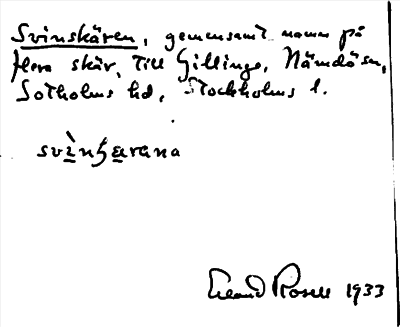 Svinskären, gemensamt namn på
flera skär, till Gillinge, Nämdö sn,
Sotholms hd, Stockholms l.
svìnʃärana
Erland Rosell 1933